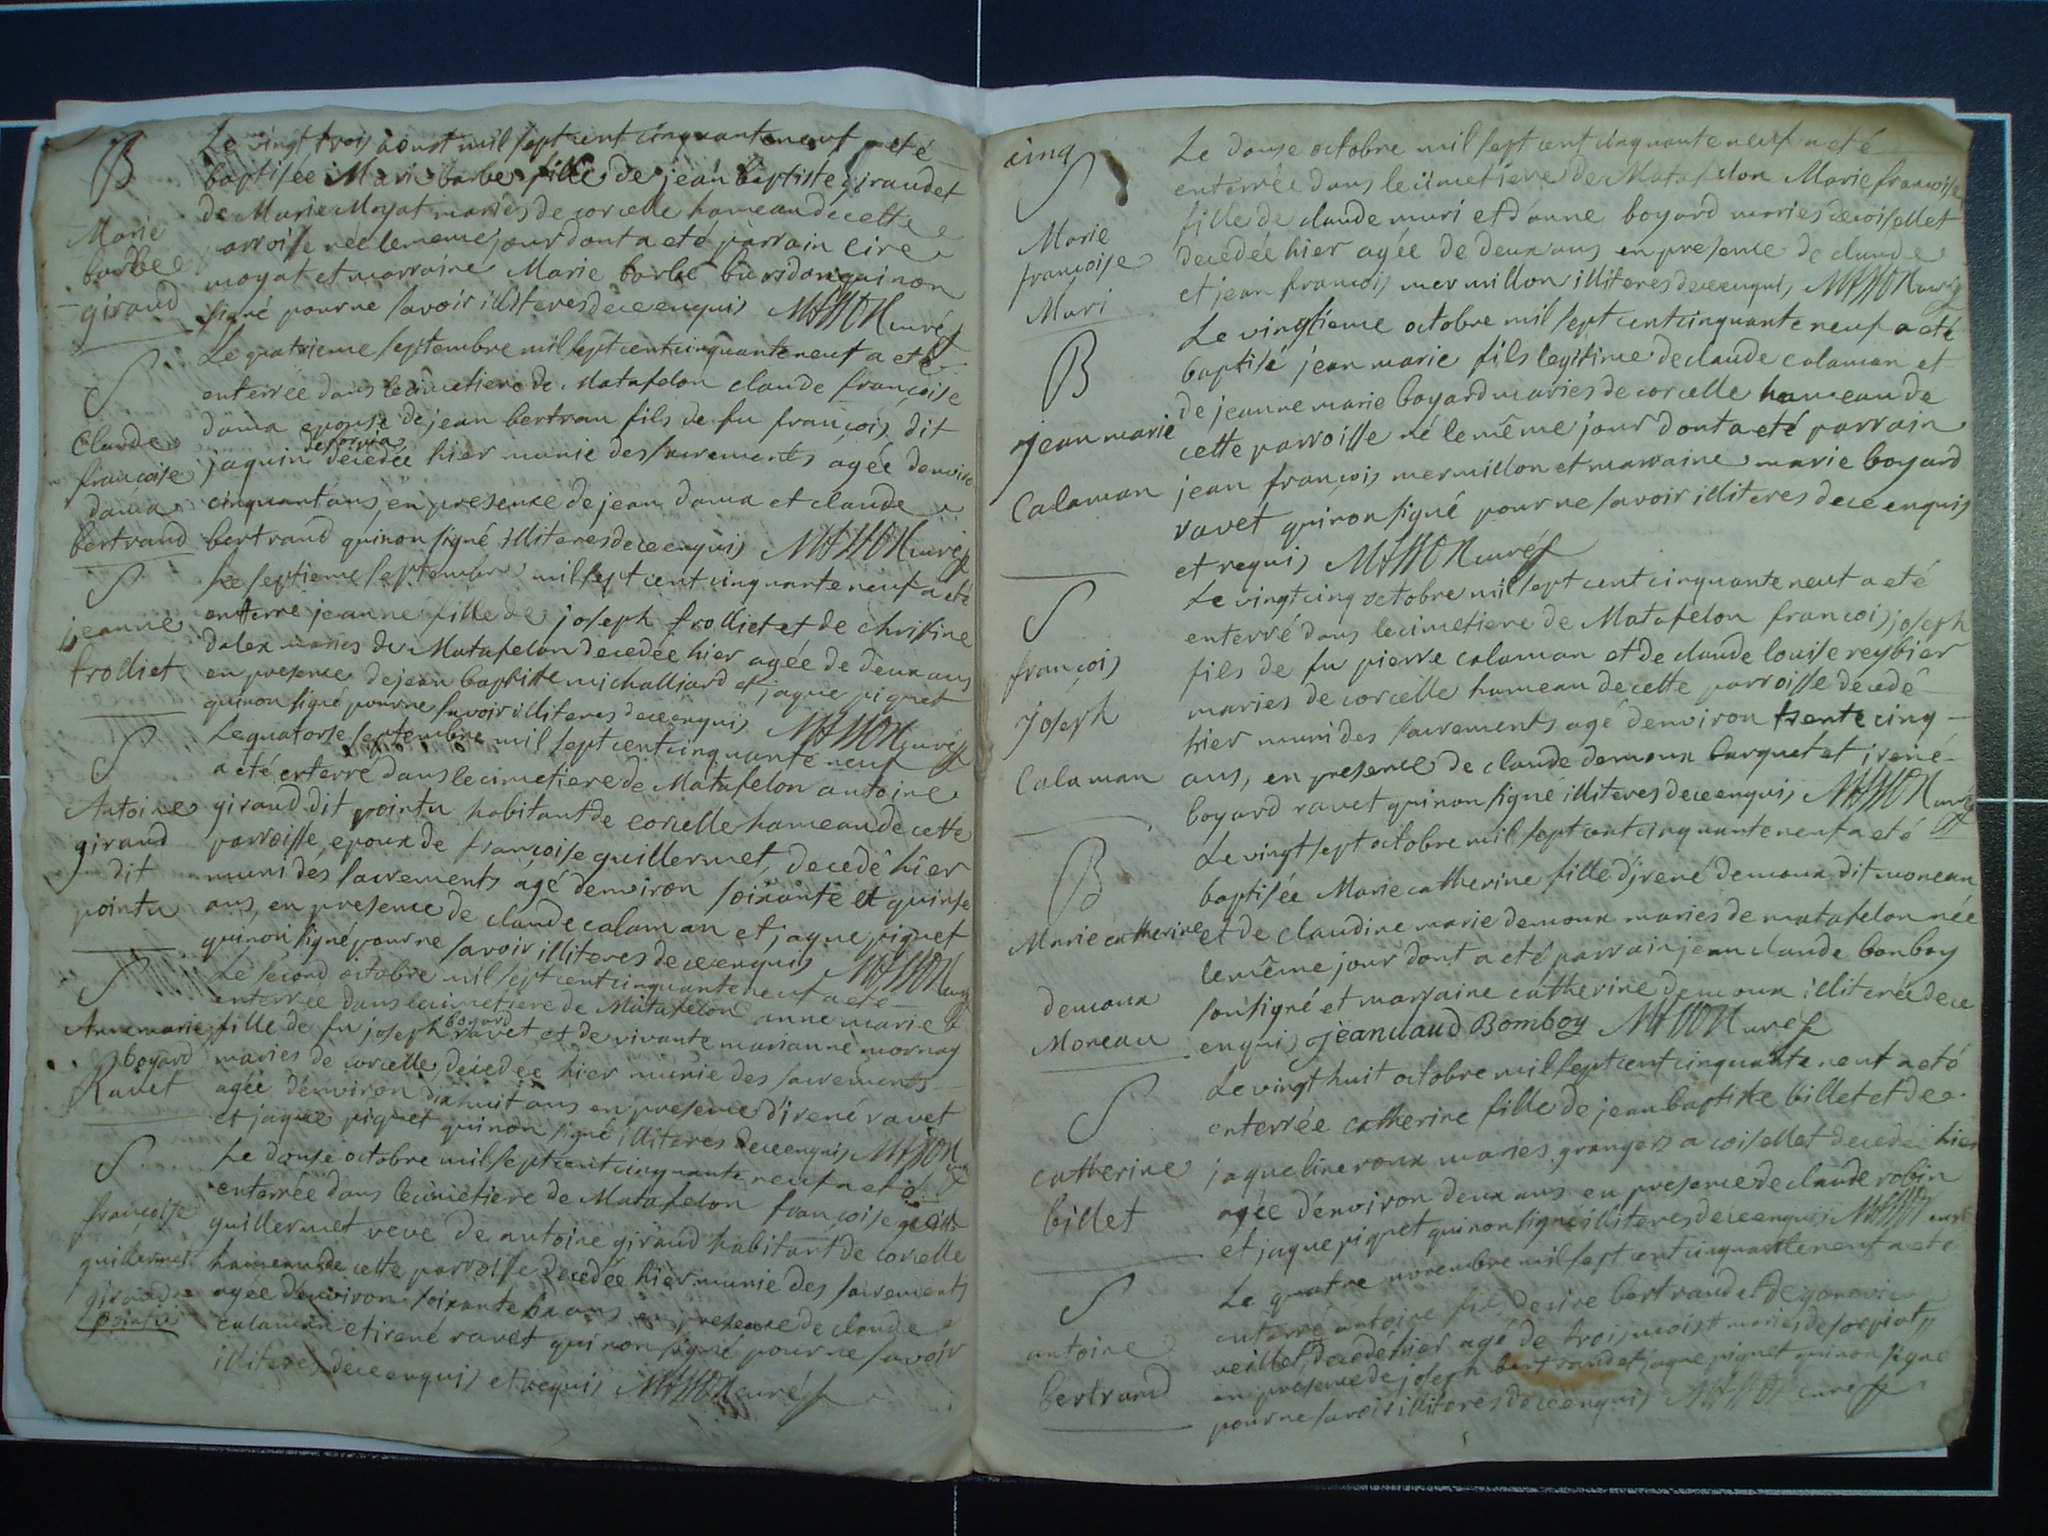 B
Marie
barbe
giraud
Le vingt trois aoust mil sept cent cinquante neuf a eté
baptisée Marie barbe fille de jean baptiste giraud et
de Marie Moyat mariés de corcelle hameau de cette
parroisse née le meme jour dont a eté parrain Cire
moyat et marraine Marie barbe qui non
signé pour ne savoir illiteres de ce enquis MASSON curé
S
Claude
françoise
dama
bertrand
Le quatrieme septembre mil sept cent cinquante neuf a eté
enterrée dans le cimetiere de Matafelon claude françoise
dama epouse de jean bertran fils de fu françois dit
jaquin decedée hier munie des sacrements agée denviron
cinquant ans, en presence de jean dama et claude
bertrand qui non signé illiteres de ce enquis MASSON curé
S
jeanne
trolliet
Le septieme septembre mil sept cent cinquante neuf a eté
enterré jeanne fille de joseph trolliet et de christine
dalex mariés de Matafelon decedée hier agée de deux ans
en presence de jean baptiste michalliard et jaque piquet
qui non signé pour ne savoir illiteres de ce enquis MASSON curé
S
Antoine
giraud
dit
pointu
Le quatorse septembre mil sept cent cinquante neuf
a eté enterré dans le cimetiere de Matafelon antoine
giraud dit pointu habitant de corcelle hameau de cette
parroisse, epoux de françoise guillermet, decedé hier
muni des sacrements agé denviron soixante et quinse
ans, en presence de claude calaman et jaque piquet
qui non signé pour ne savoir illiteres de ce enquis MASSON curé
S
Anne marie
boyard
Ravet
Le second octobre mil sept cent cinquante neuf a eté
enterrée dans le cimetiere de Matafelon anne marie
fille de fu joseph boyard ravet et de vivante marianne mornay
mariés de corcelle decedée hier munie des sacrements
agée denviron dix huit ans en presence d'irené ravet
et jaque piquet qui non signé illiteres de ce enquis MASSON
S
françoise
guillermet
giraud
pointu
Le douse octobre mil sept cent cinquante neuf a eté
enterrée dans le cimetiere de Matafelon françoise
guillermet veve de antoine giraud habitant de corcelle
hameau de cette parroisse decedée hier munie des sacrements
agée denviron soixante six ans en presence de claude
calaman et irené ravet qui non signé pour ne savoir
illiteres de ce enquis et requis MASSON curé
cinq
S
Marie
françoise
Muri
Le douse octobre mil sept cent cinquante neuf a eté
enterrée dans le cimetiere de Matafelon Marie françoise
fille de claude muri et d'anne boyard mariés de coisellet
decedée hier agée de deux ans en presence de claude
et jean françois mermillon illiteres de ce enquis MASSON curé
B
jean marie
Calaman
Le vingtieme octobre mil sept cent cinquante neuf a eté
baptisé jean marie fils legitime de claude calaman et
de jeanne marie boyard mariés de corcelle hameau de
cette parroisse né le même jour dont a eté parrain
jean françois mermillon et marraine marie boyard
ravet qui non signé pour ne savoir illiteres de ce enquis
et requis MASSON curé
S
françois
joseph
Calaman
Le vingt cinq octobre mil sept cent cinquante neuf a eté
enterré dans le cimetiere de Matafelon françois joseph
fils de fu pierre calaman et de claude louise reybier
mariés de corcelle hameau de cette parroisse decedé
hier muni des sacrements agé denviron trente cinq
ans, en presence de claude demoux barquet et irené
boyard ravet qui non signé illiteres de ce enquis MASSON curé
B
Marie catherine
demoux
Moreau
Le vingt sept octobre mil sept cent cinquante neuf a eté
baptisée Marie catherine fille d'irené demoux dit moreau
et de claudine marie demoux mariés de matafelon née
le même jour dont a eté parrain jean claude bonboy
soussigné et marraine catherine demoux illiterée de ce
enquis jean claud Bomboy MASSON curé
S
catherine
billet
Le vingt huit octobre mil sept cent cinquante neuf a eté
enterrée catherine fille de jean baptiste billet et de
jaqueline roux mariés grangers a coisellet decedée hier
agée denviron deux ans en presence de claude robin
et jaque piquet qui non signé illiteres de ce enquis MASSON curé
S
antoine
bertrand
Le quatre novembre mil sept cent cinquante neuf a eté
enterré antoine fils de cire bertrand et de
veillet, decedé hier agé de trois mois mariés de
en presence de joseph bertrand et jaque piquet qui non signé
pour ne savoir illiteres de ce enquis MASSON curé